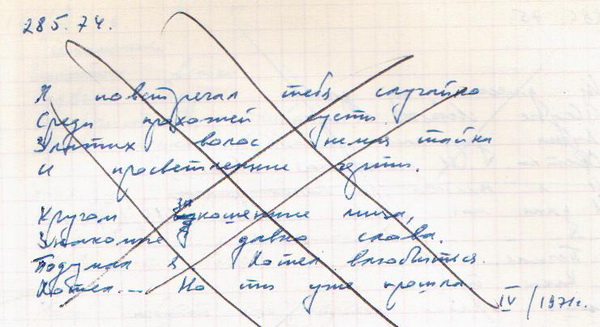 28 5. 74.
Я повстречал тебя случайно
Среди прохожей густи.
Златых волос немая тайна
И просветленные
Кругом лица,
Знакомые давно слова.
Подумал я Хотел влюбиться.
Хотел.... Но ты уже прошла.
IV / 1971г.